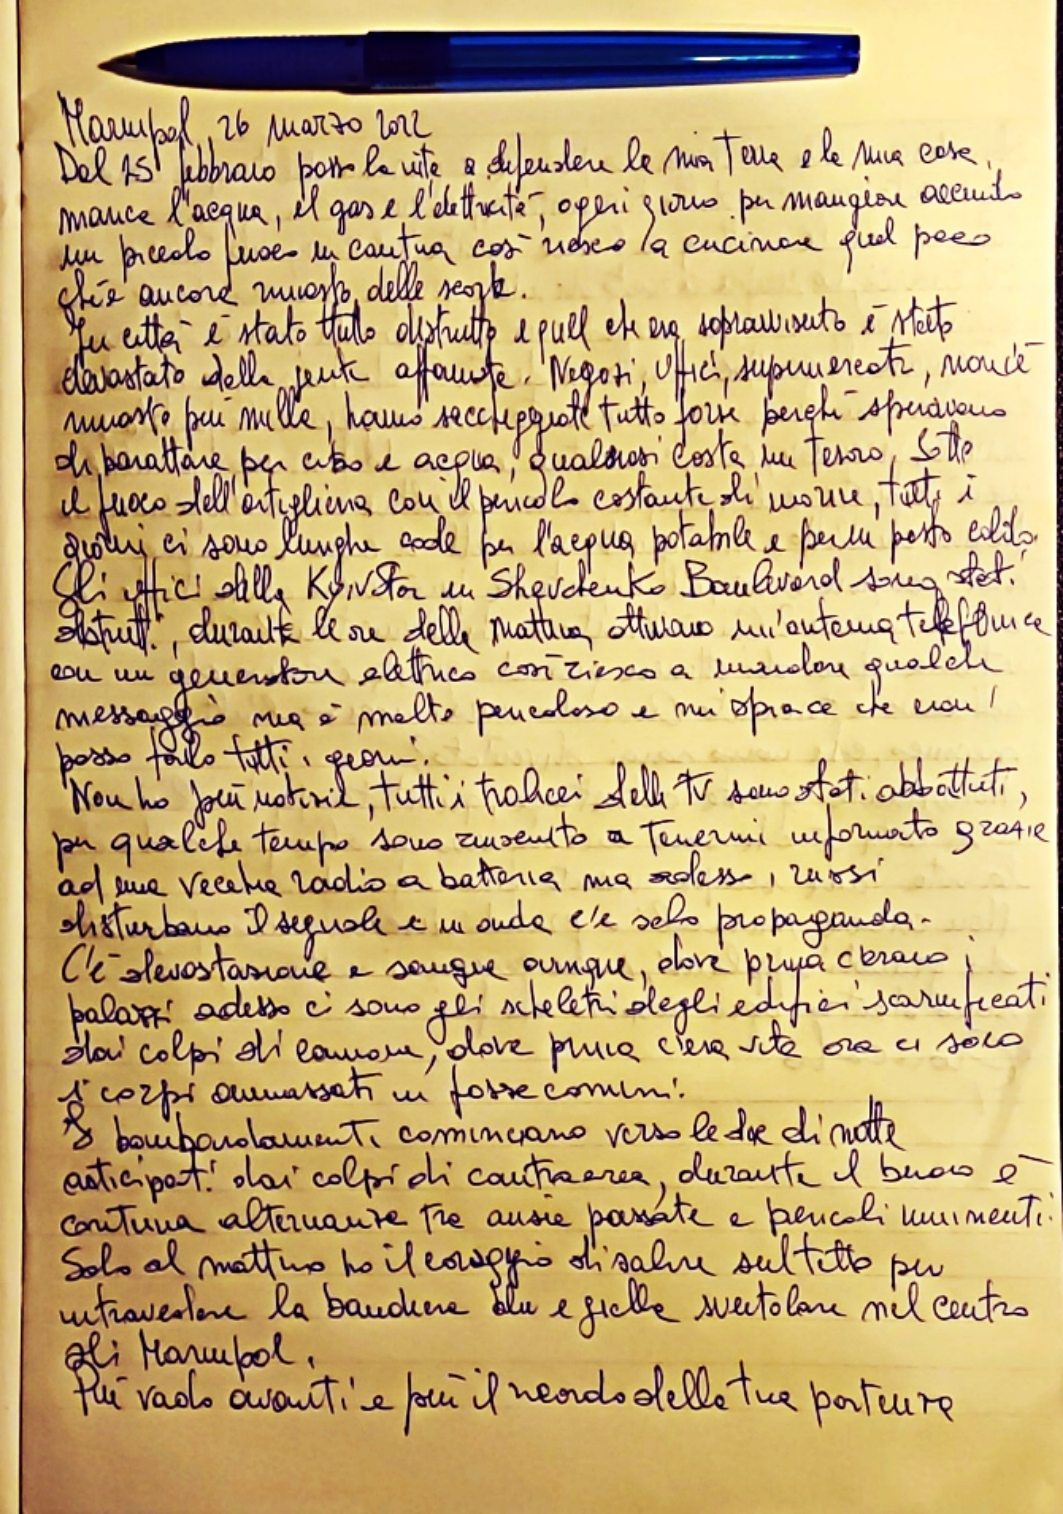 Mariupol, 26 marzo 2022
Dal 25 febbraio passo la vita a difendere la mia terra e la mia casa,
manca l'acqua, il gas e l'elettricità, ogni giorno per mangiare accendo
un piccolo fuoco in cantina così riesco a cucinare quel poco
ch'è ancora rimasto delle scorte.
In città è stato tutto distrutto e quel che era sopravvissuto è stato
devastato dalla gente affamata. Negozi, uffici, supermercati, non c'è
rimasto più nulla, hanno saccheggiato tutto forse perché speravano
di barattare per cibo e acqua, qualsiasi costa un tesoro, Sotto
il fuoco dell'artiglieria con il pericolo costante di morire, tutti i
giorni ci sono lunghe code per l'acqua potabile e per un pasto caldo.
Gli uffici della Kyivstar in Shevchenko Boulevard sono stati
distrutti, durante le ore della mattina attivano un'antenna telefonica
con un generatore elettrico così riesco a mandare qualche
messaggio ma è molto pericoloso e mi spiace che non
posso farlo tutti i giorni.
Non ho più notizie, tutti i tralicci della TV sono stati abbattuti,
per qualche tempo sono riuscito a tenermi informato grazie
ad una vecchia radio a batteria ma adesso i russi
disturbano il segnale e in onda c'è solo propaganda.
C'è devastazione e sangue ovunque, dove prima c'erano i
palazzi adesso ci sono gli scheletri degli edifici scarnificati
dai colpi di cannone, dove prima c'era vita ora ci sono
i corpi ammassati in fosse comuni.
I bombardamenti cominciano verso le due di notte
anticipati dai colpi di contraerea, durante il buio è
continua alternanza tra ansie passate e pericoli imminenti.
Solo al mattino ho il coraggio di salire sul tetto per
intravedere la bandiera blu e gialla sventolare nel centro
di Mariupol.
Più vado avanti e più il ricordo della tua partenza